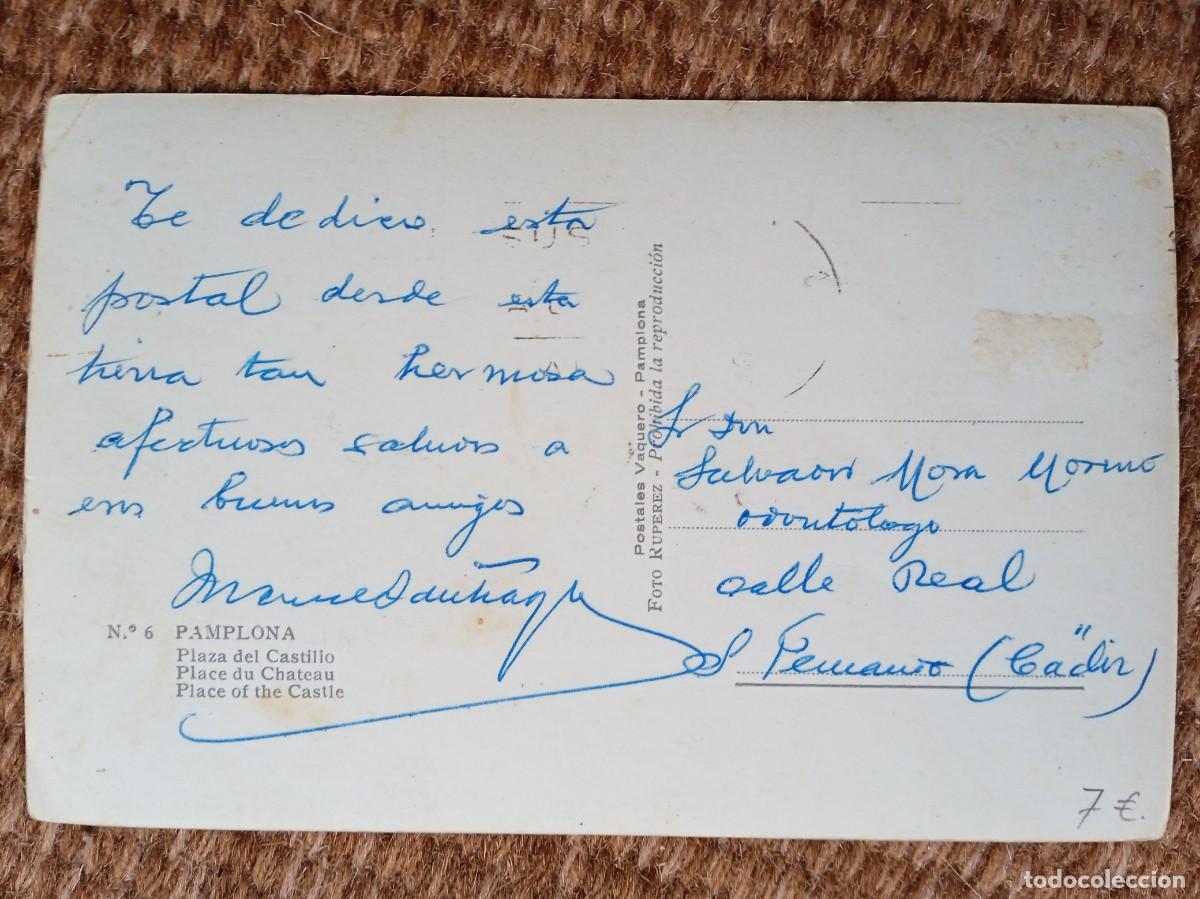 Te dedico esta
postal desde esta
tierra tan hermosa
afectuosos saludos a
esos buenos amigos
Manuel
Nº 6 PAMPLONA
Plaza del Castillo
Place du Chateau
Place of the Castle
Postales Vaquero - Pamplona
FOTO RUPEREZ - Prohibida la reproducción
SUS
Sr Don
Salvador Mora Moreno
odontólogo
calle Real
S Fernando (Cádiz)
7 €.
todocoleccion